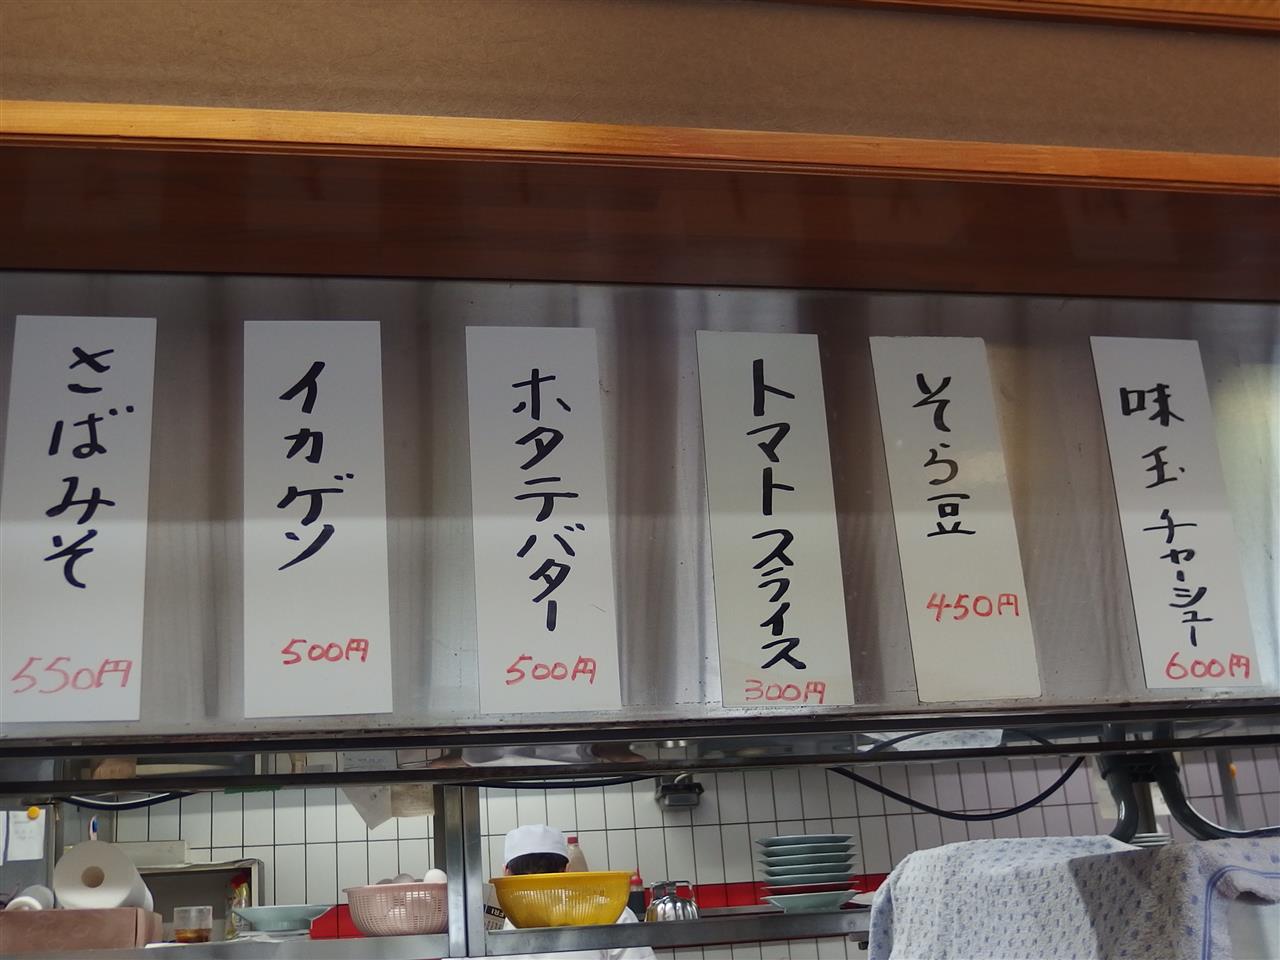 さばみそ
550円
イカゲソ
500円
ホタテバター
500円
トマトスライス
300円
そら豆
450円
味玉チャーシュー
600円